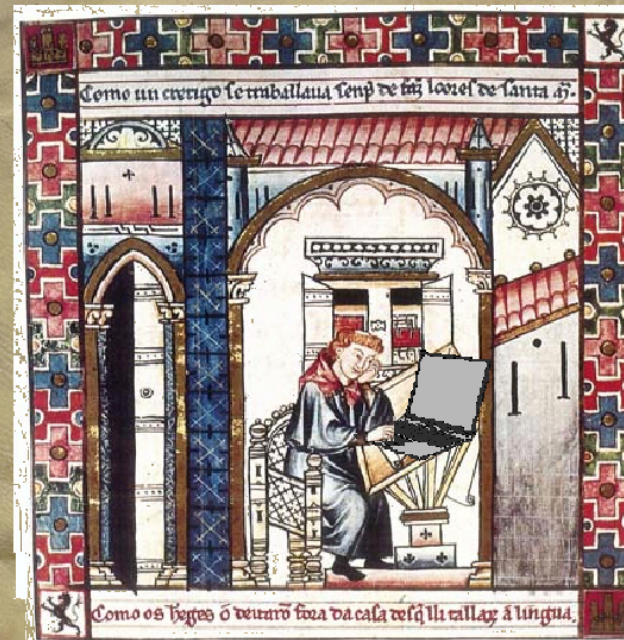 Como un crerigo se traballaua senp̄ de faz̄ loores de santa m̄.
Como os hereges o deitarō fora da casa desq̄ lli tallarō a lingua.